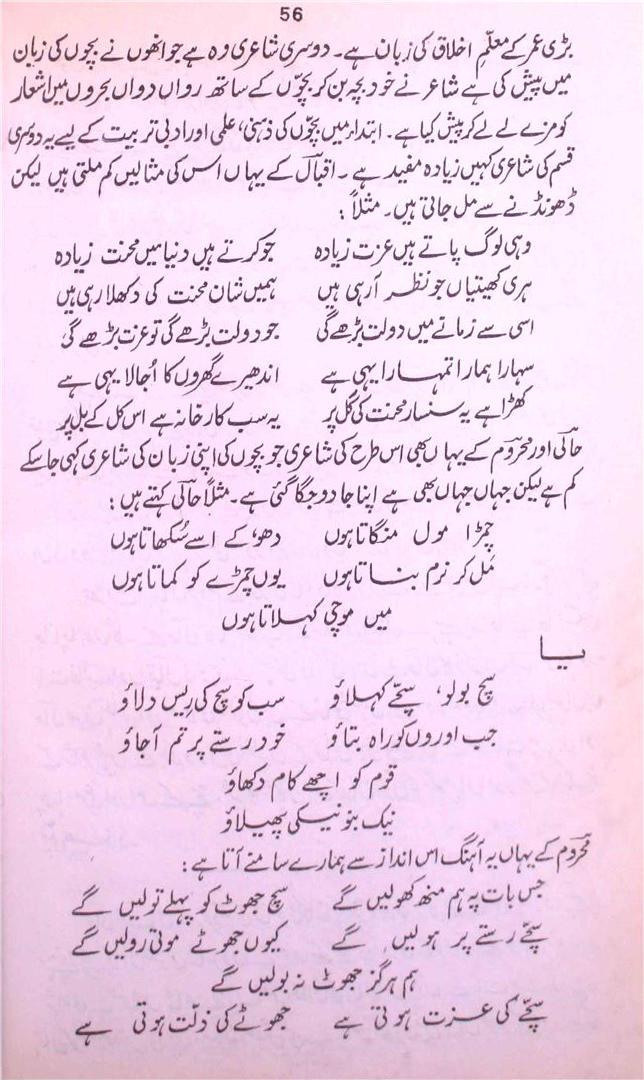 56
بڑی عمر کے معلّمِ اخلاق کی زبان ہے۔ دوسری شاعری وہ ہے جو انھوں نے بچوں کی زبان
میں پیش کی ہے شاعر نے خود بچہ بن کر بچّوں کے ساتھ رواں دواں بحروں میں اشعار
کو مزے لے لے کر پیش کیا ہے۔ ابتداء میں بچّوں کی ذہنی، علمی اور ادبی تربیت کے لیے یہ دوسری
قسم کی شاعری کہیں زیادہ مفید ہے۔ اقبالؔ کے یہاں اس کی مثالیں کم ملتی ہیں لیکن
ڈھونڈنے سے مل جاتی ہیں۔ مثلاً:
وہی لوگ پاتے ہیں عزت زیادہ جو کرتے ہیں دنیا میں محنت زیادہ
ہری کھیتیاں جو نظر آ رہی ہیں ہمیں شان محنت کی دکھلا رہی ہیں
اسی سے زمانے میں دولت بڑھے گی جو دولت بڑھے گی تو عزت بڑھے گی
سہارا ہمارا تمہارا یہی ہے اندھیرے گھروں کا اُجالا یہی ہے
کھڑا ہے یہ سنسار محنت کی کل پر یہ سب کارخانہ ہے اس کل کے بل پر
حالیؔ اور محرومؔ کے یہاں بھی اس طرح کی شاعری جو بچوں کی اپنی زبان کی شاعری کہی جا سکے
کم ہے لیکن جہاں جہاں بھی ہے اپنا جادو جگا گئی ہے۔ مثلاً حالیؔ کہتے ہیں:
چمڑا مول منگاتا ہوں دھو کے اسے سُکھاتا ہوں
مَل کر نرم بناتا ہوں یوں چمڑے کو کماتا ہوں
میں موچی کہلاتا ہوں
یا
سچ بولو، سچّے کہلاؤ سب کو سچ کی رِیس دلاؤ
جب اوروں کو راہ بتاؤ خود رستے پر تم آجاؤ
قوم کو اچھے کام دکھاؤ
نیک بنو نیکی پھیلاؤ
محرومؔ کے یہاں یہ آہنگ اس انداز سے ہمارے سامنے آتا ہے:
جس بات پہ ہم منھ کھولیں گے سچ جھوٹ کو پہلے تولیں گے
سچّے رستے پر ہولیں گے کیوں جھوٹے موتی رولیں گے
ہم ہرگز جھوٹ نہ بولیں گے
سچّے کی عزت ہوتی ہے جھوٹے کی ذلّت ہوتی ہے